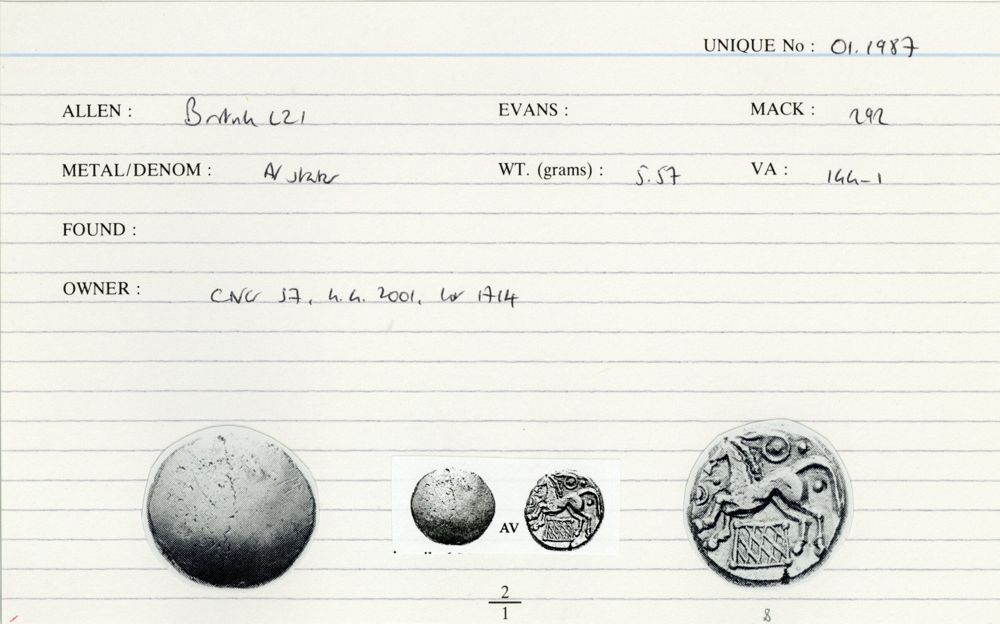 UNIQUE No : 01.1987
ALLEN : British L21 EVANS : MACK : 292
METAL/DENOM : AV stater WT. (grams) : 5.57 VA : 144-1
FOUND :
OWNER : CNG 57, 4.4.2001, lot 1714
AV
2
1
8